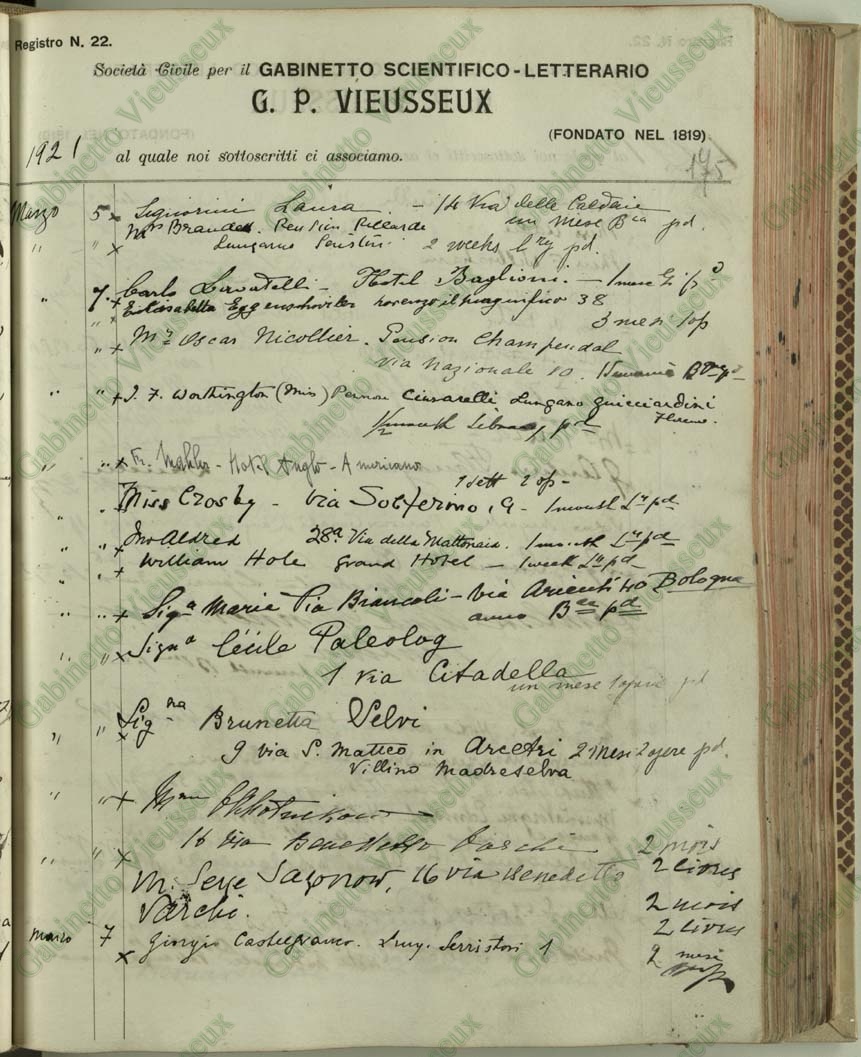 Registro N. 22.
Società Civile per il GABINETTO SCIENTIFICO-LETTERARIO
G. P. VIEUSSEUX
(FONDATO NEL 1819)
1921
al quale noi sottoscritti ci associamo.
175
Marzo 5 x Signorini Laura - 14 Via delle Caldaie
un mese pd.
Mrs Pension Piccardi
" " x Lungarno 2 weeks pd.
" 7. x Carlo Lovatelli - Hotel Baglioni. - 1 mese
" x Elisabetta lorenzo il magnifico 38
3 mesi 1 op
" " x Mr Oscar Nicollier. Pension Champendal
via Nazionale 10.
" " x J. F. Worthington (Miss) Pension Lungarno guicciardini
Florence.
1/2 month Library pd
" " x Fr. Mahler - Hotel Anglo-Americano
1 sett 2 op-
" Miss Crosby - Via Solferino, 9 - 1 month pd
" " x Jno Aldred 28a Via della Mattonaia. 1 month pd
" " x William Hole Grand Hotel - 1 week pd
" " x Sig.a Maria Pia Biancoli - Via Arienti 40 Bologna
anno pd
" " x Sign.a Cécile Paleolog
1 Via Citadella
un mese 1 opera pd
" " x Sig.na Brunetta Velvi
9 via S. Matteo in Arcetri 2 mesi 2 opere pd.
Villino Madreselva
" " x Mme
16 Via Benedetto Varchi 2 mois
2 livres
" " x M. Serge Sazonow, 16 via Benedetto
Varchi. 2 mois
2 livres
Marzo 7 x Giorgio Castelfranco. Lung. Serristori 1 2 mesi